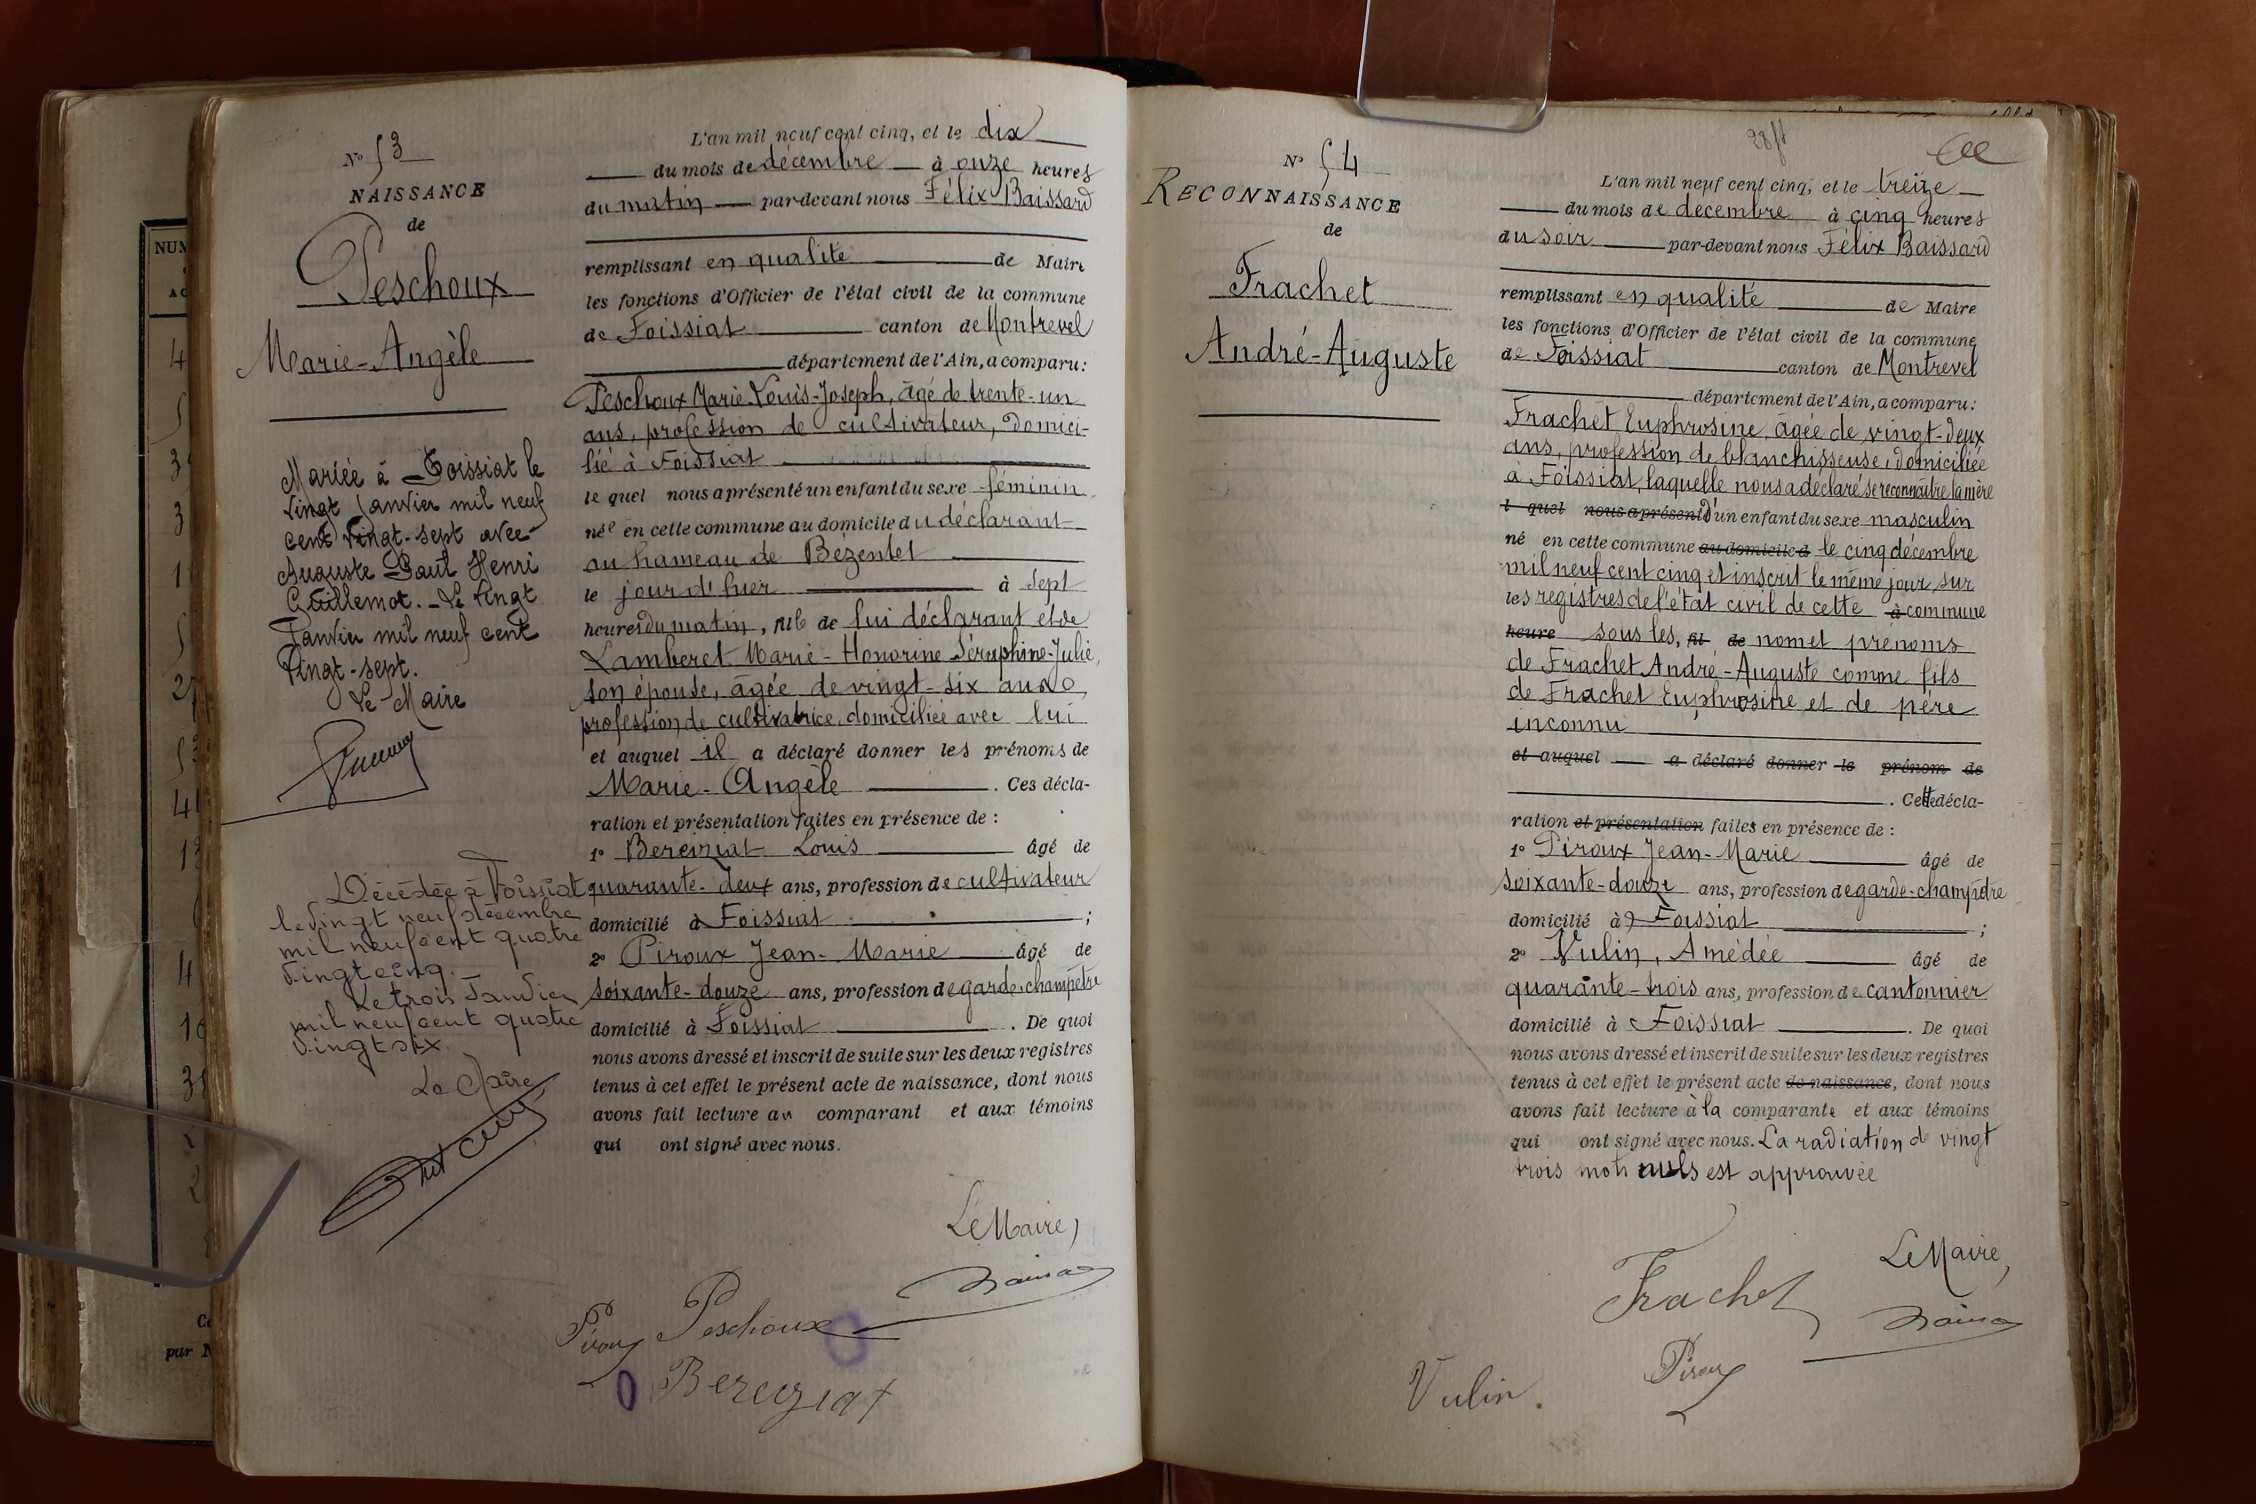 N° 53
NAISSANCE
de
Peschoux
Marie-Angèle
Mariée à Foissiat le
vingt Janvier mil neuf
cent vingt-sept avec
Auguste Paul Henri
Guillemot. - Le vingt
Janvier mil neuf cent
vingt-sept.
Le Maire
Décédée à Foissiat
le vingt neuf décembre
mil neuf cent quatre
vingt cinq. -
Le trois Janvier
mil neuf cent quatre
vingt six.
Le Maire
L'an mil neuf cent cinq, et le dix
du mois de décembre à onze heures
du matin par-devant nous Félix Baissard
remplissant en qualité de Maire
les fonctions d'Officier de l'état civil de la commune
de Foissiat canton de Montrevel
département de l'Ain, a comparu:
Peschoux Marie-Louis-Joseph, âgé de trente-un
ans, profession de cultivateur, domici-
lié à Foissiat
le quel nous a présenté un enfant du sexe féminin
née en cette commune au domicile du déclarant
au hameau de Bézentet
le jour d'hier à sept
heures du matin, fille de lui déclarant et de
Lamberet Marie-Honorine Séraphine-Julie,
son épouse, âgée de vingt-six ans
profession de cultivatrice, domiciliée avec lui
et auquel il a déclaré donner les prénoms de
Marie-Angèle. Ces décla-
ration et présentation faites en présence de :
1° Bereiziat Louis âgé de
quarante-deux ans, profession de cultivateur
domicilié à Foissiat ;
2° Piroux Jean-Marie âgé de
soixante-douze ans, profession de garde-champêtre
domicilié à Foissiat. De quoi
nous avons dressé et inscrit de suite sur les deux registres
tenus à cet effet le présent acte de naissance, dont nous
avons fait lecture au comparant et aux témoins
qui ont signé avec nous.
Le Maire,
Piroux Peschoux
Bereyziat
N° 54
RECONNAISSANCE
de
Frachet
André-Auguste
L'an mil neuf cent cinq, et le treize
du mois de décembre à cinq heures
du soir par-devant nous Félix Baissard
remplissant en qualité de Maire
les fonctions d'Officier de l'état civil de la commune
de Foissiat canton de Montrevel
département de l'Ain, a comparu:
Frachet Euphrosine, âgée de vingt-deux
ans, profession de blanchisseuse, domiciliée
à Foissiat, laquelle nous a déclaré se reconnaître la mère
l quel nous a présenté d'un enfant du sexe masculin
né en cette commune au domicile d le cinq décembre
mil neuf cent cinq et inscrit le même jour, sur
les registres de l'état civil de cette à commune
heure sous les, fil de nom et prénoms
de Frachet André-Auguste comme fils
de Frachet Euphrosine et de père
inconnu
et auquel a déclaré donner le prénom de
. Cette décla-
ration et présentation faites en présence de :
1° Piroux Jean-Marie âgé de
soixante-douze ans, profession de garde-champêtre
domicilié à Foissiat ;
2° Vulin, Amédée âgé de
quarante-trois ans, profession de cantonnier
domicilié à Foissiat. De quoi
nous avons dressé et inscrit de suite sur les deux registres
tenus à cet effet le présent acte de naissance, dont nous
avons fait lecture à la comparante et aux témoins
qui ont signé avec nous. La radiation de vingt
trois mots nuls est approuvée
Le Maire,
Frachet
Piroux
Vulin